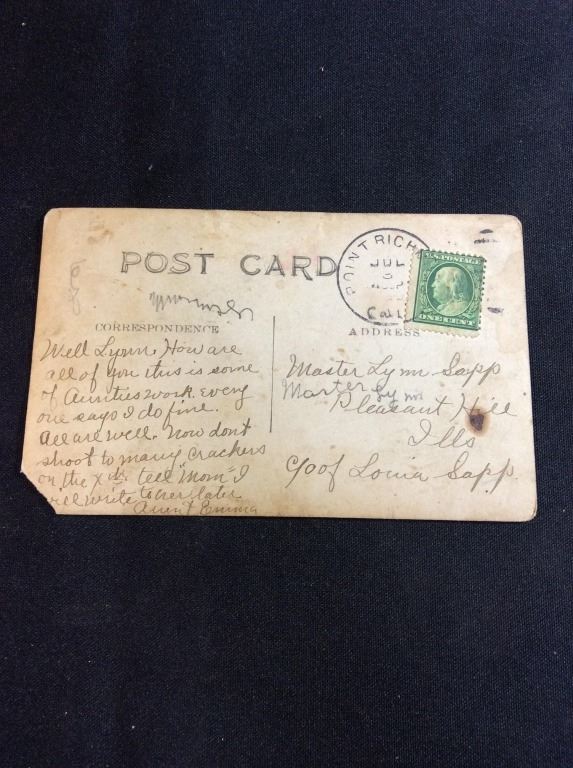 POST CARD
CORRESPONDENCE
ADDRESS
POINT RICH
JUL
Cal
U.S. POSTAGE
ONE CENT
Well Lynn. How are
all of you this is some
of Aunties work. Every
one says I do fine.
all are well. Now don't
shoot to many crackers
on the tell "Mom" I
write to her later
Aunt Emma
Master Lynn Sapp
Master
Pleasant Hill
Ills
c/o of Louia Sapp.